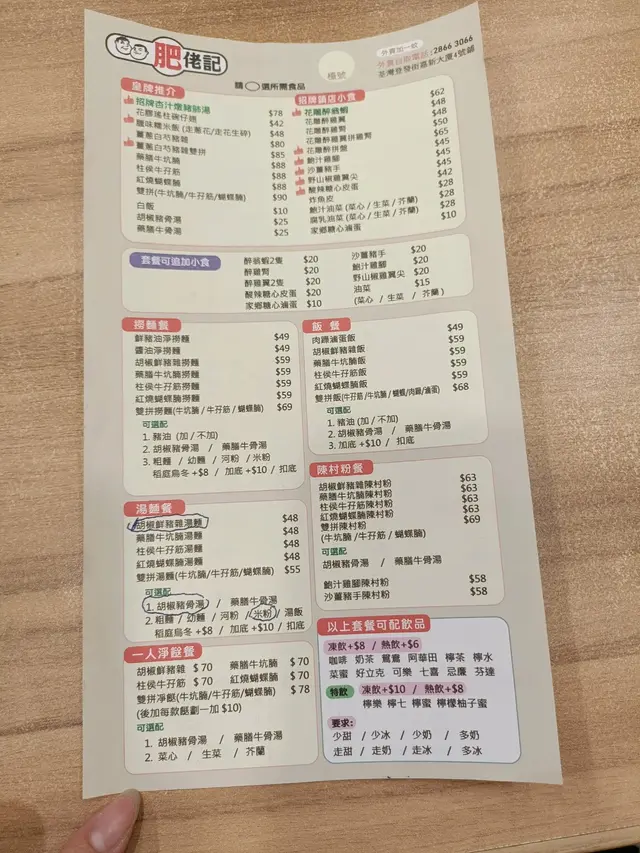 肥佬記
請◯選所需食品
檯號
外賣加一蚊
外賣自取電話:2866 3066
荃灣登發街嘉新大廈4號鋪
皇牌推介
招牌杏汁燉豬肺湯 $78
花膠瑤柱碗仔翅 $42
臘味糯米飯 (走蔥花/走花生碎) $48
薑蔥白芍豬雜 $80
薑蔥白芍豬雜雙拼 $85
藥膳牛坑腩 $88
柱侯牛孖筋 $88
紅燒蝴蝶腩 $88
雙拼(牛坑腩/牛孖筋/蝴蝶腩) $90
白飯 $10
胡椒豬骨湯 $25
藥膳牛骨湯 $25
招牌鎮店小食 $62
花雕醉翁蝦 $48
花雕醉雞翼 $48
花雕醉雞腎 $50
花雕醉雞翼拼雞腎 $65
花雕醉拼盤 $45
鮑汁雞腳 $45
沙薑豬手 $45
野山椒雞翼尖 $42
酸辣糖心皮蛋 $28
炸魚皮 $28
鮑汁油菜 (菜心 / 生菜 / 芥蘭) $28
腐乳油菜 (菜心 / 生菜 / 芥蘭) $28
家鄉糖心滷蛋 $10
套餐可追加小食
醉翁蝦2隻 $20
醉雞腎 $20
醉雞翼2隻 $20
酸辣糖心皮蛋 $20
家鄉糖心滷蛋 $10
沙薑豬手 $20
鮑汁雞腳 $20
野山椒雞翼尖 $20
油菜 $15
(菜心 / 生菜 / 芥蘭 )
撈麵餐
鮮豬油淨撈麵 $49
醬油淨撈麵 $49
胡椒鮮豬雜撈麵 $59
藥膳牛坑腩撈麵 $59
柱侯牛孖筋撈麵 $59
紅燒蝴蝶腩撈麵 $59
雙拼撈麵(牛坑腩/牛孖筋/蝴蝶腩) $69
可選配
1. 豬油 (加 / 不加)
2. 胡椒豬骨湯 / 藥膳牛骨湯
3. 粗麵 / 幼麵 / 河粉 / 米粉
稻庭烏冬 +$8 / 加底 +$10 / 扣底
飯餐
肉蹄滷蛋飯 $49
胡椒鮮豬雜飯 $59
藥膳牛坑腩飯 $59
柱侯牛孖筋飯 $59
紅燒蝴蝶腩飯 $59
雙拼飯(牛孖筋/牛坑腩/蝴蝶/肉蹄/滷蛋) $68
可選配
1. 豬油 (加 / 不加)
2. 胡椒豬骨湯 / 藥膳牛骨湯
3. 加底 +$10 / 扣底
湯麵餐
胡椒鮮豬雜湯麵 $48
藥膳牛坑腩湯麵 $48
柱侯牛孖筋湯麵 $48
紅燒蝴蝶腩湯麵 $48
雙拼湯麵(牛坑腩/牛孖筋/蝴蝶腩) $55
可選配
1. 胡椒豬骨湯 / 藥膳牛骨湯
2. 粗麵 / 幼麵 / 河粉 / 米粉 / 湯飯
稻庭烏冬 +$8 / 加底 +$10 / 扣底
陳村粉餐
胡椒鮮豬雜陳村粉 $63
藥膳牛坑腩陳村粉 $63
柱侯牛孖筋陳村粉 $63
紅燒蝴蝶腩陳村粉 $63
雙拼陳村粉 $69
(牛坑腩/牛孖筋/蝴蝶腩)
可選配
胡椒豬骨湯 / 藥膳牛骨湯
鮑汁雞腳陳村粉 $58
沙薑豬手陳村粉 $58
一人淨餸餐
胡椒鮮豬雜 $ 70
藥膳牛坑腩 $ 70
柱侯牛孖筋 $ 70
紅燒蝴蝶腩 $ 70
雙拼淨餸(牛坑腩/牛孖筋/蝴蝶腩) $ 78
(後加每款餸劃一加 $10)
可選配
1. 胡椒豬骨湯 / 藥膳牛骨湯
2. 菜心 / 生菜 / 芥蘭
以上套餐可配飲品
凍飲+$8 / 熱飲+$6
咖啡 奶茶 鴛鴦 阿華田 檸茶 檸水
菜蜜 好立克 可樂 七喜 忌廉 芬達
特飲 凍飲+$10 / 熱飲+$8
檸樂 檸七 檸蜜 檸檬柚子蜜
要求:
少甜 / 少冰 / 少奶 / 多奶
走甜 / 走奶 / 走冰 / 多冰